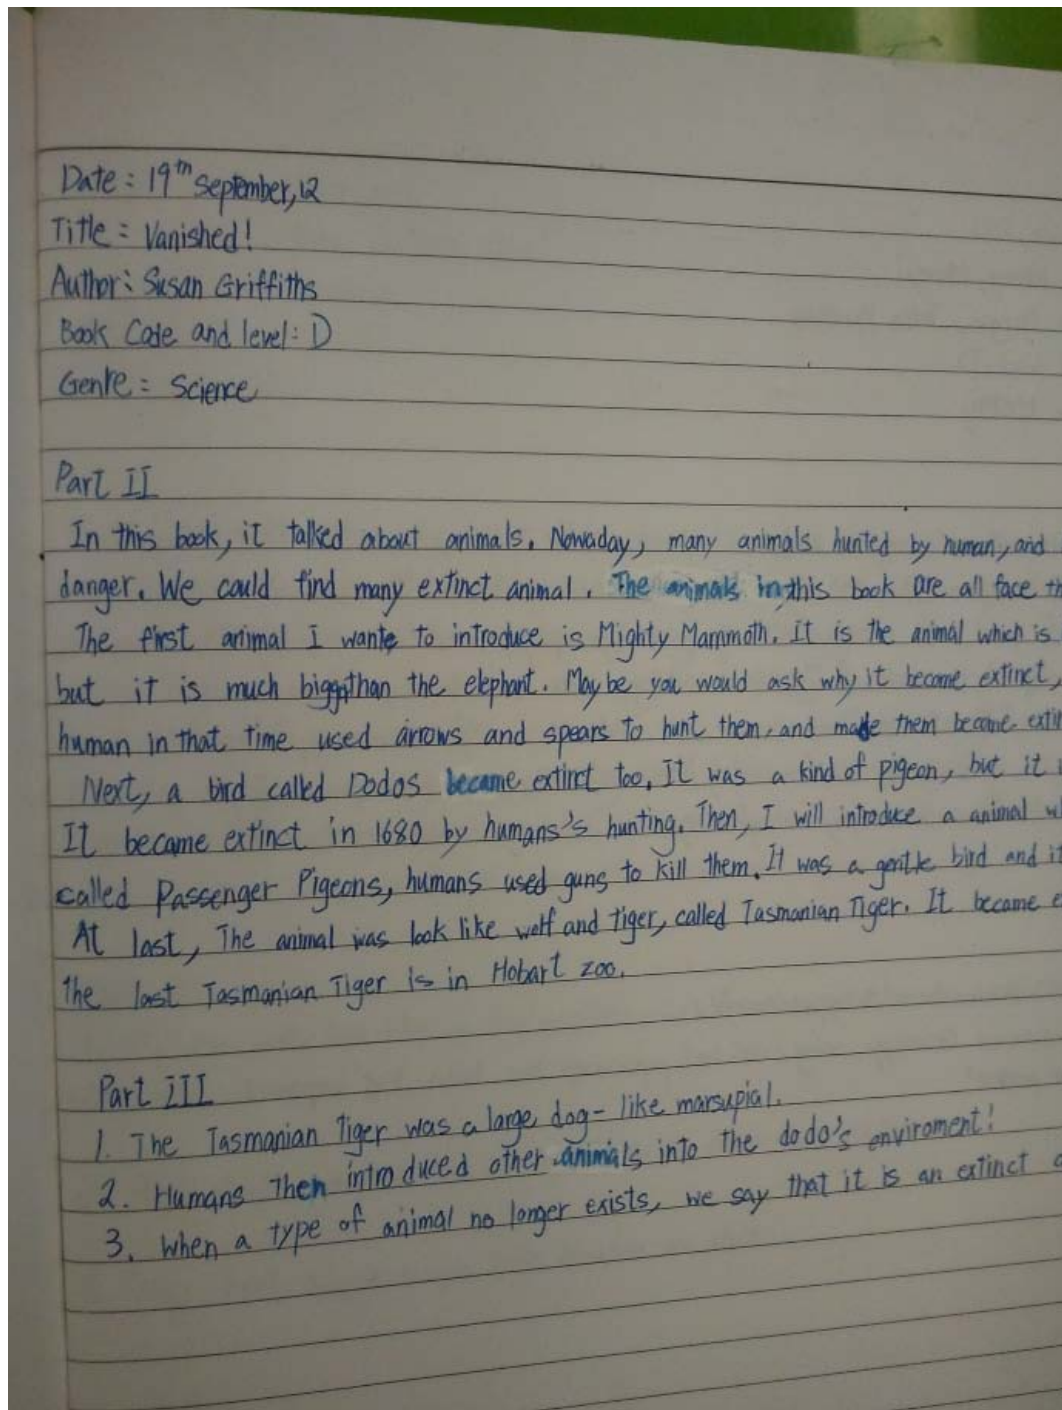 Date: 19th September, 12
Title: Vanished!
Author: Susan Griffiths
Book Code and level: D
Genre: Science
Part II
In this book, it talked about animals. Nowaday, many animals hunted by human, and
danger. We could find many extinct animal. The animals in this book are all face
The first animal I want to introduce is Mighty Mammoth. It is the animal which is
but it is much bigger than the elephant. Maybe you would ask why it become extinct,
human in that time used arrows and spears to hunt them, and made them became
Next, a bird called Dodos became extinct too. It was a kind of pigeon, but it
It became extinct in 1680 by humans's hunting. Then, I will introduce a animal
called Passenger Pigeons, humans used guns to kill them. It was a gentle bird and
At last, The animal was look like wolf and tiger, called Tasmanian Tiger. It became
the last Tasmanian Tiger is in Hobart zoo.
Part III
1. The Tasmanian Tiger was a large dog-like marsupial.
2. Humans then introduced other animals into the dodo's enviroment!
3. When a type of animal no longer exists, we say that it is an extinct